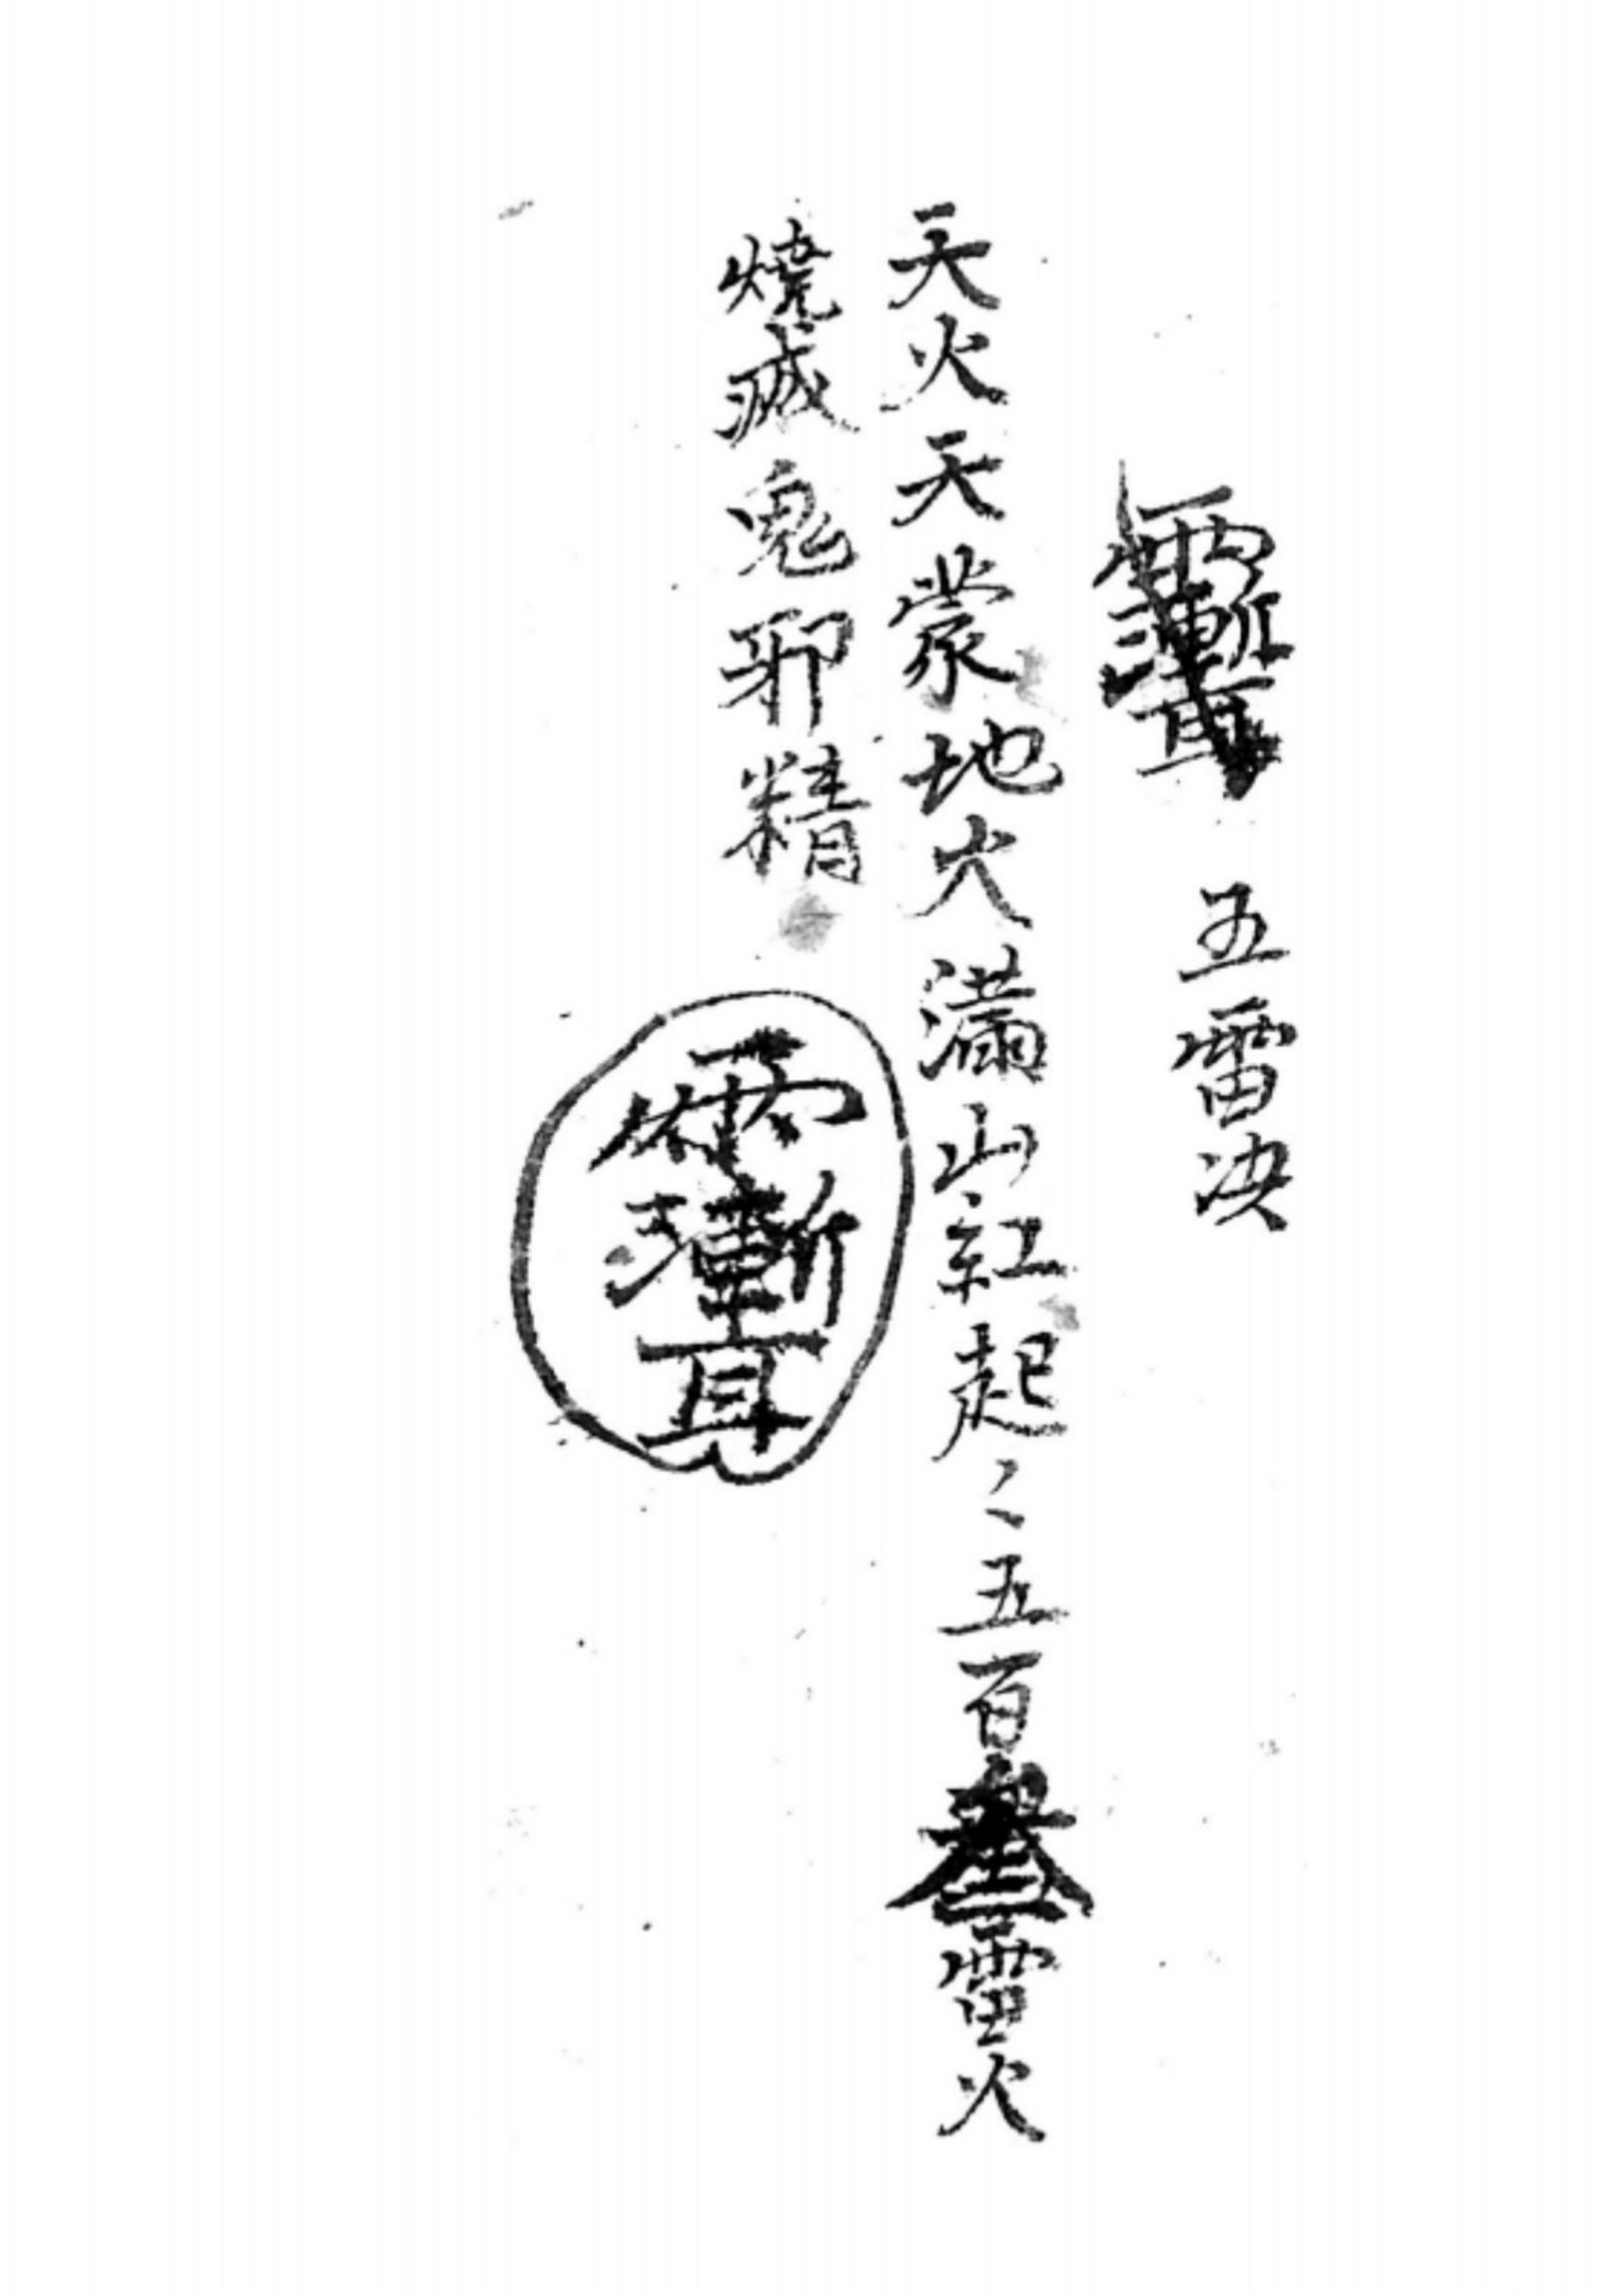 五雷决
天火天蒙地火滿山紅起〻五百雷火
燒滅鬼邪精